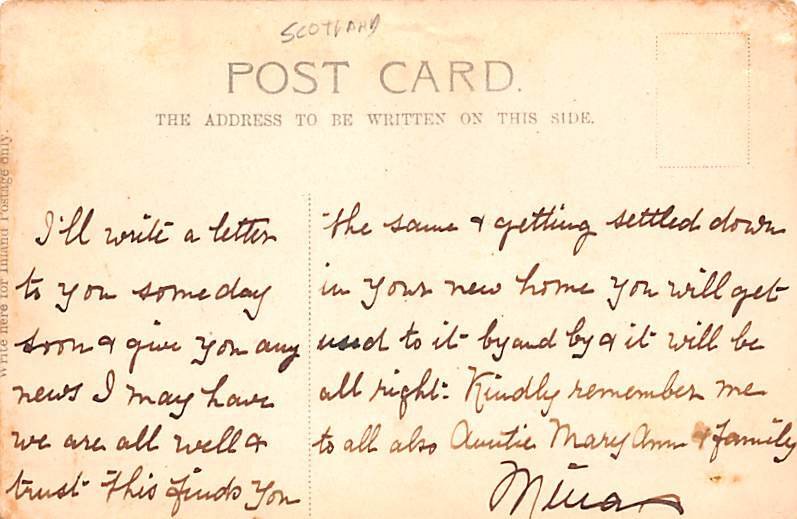 SCOTLAND
POST CARD.
THE ADDRESS TO BE WRITTEN ON THIS SIDE.
Write here for Inland Postage only.
I'll write a letter
to you some day
soon & give you any
news I may have
we are all well &
trust this finds you
the same & getting settled down
in your new home you will get
used to it by and by & it will be
all right. Kindly remember me
to all also Auntie Mary Ann & family
Mina